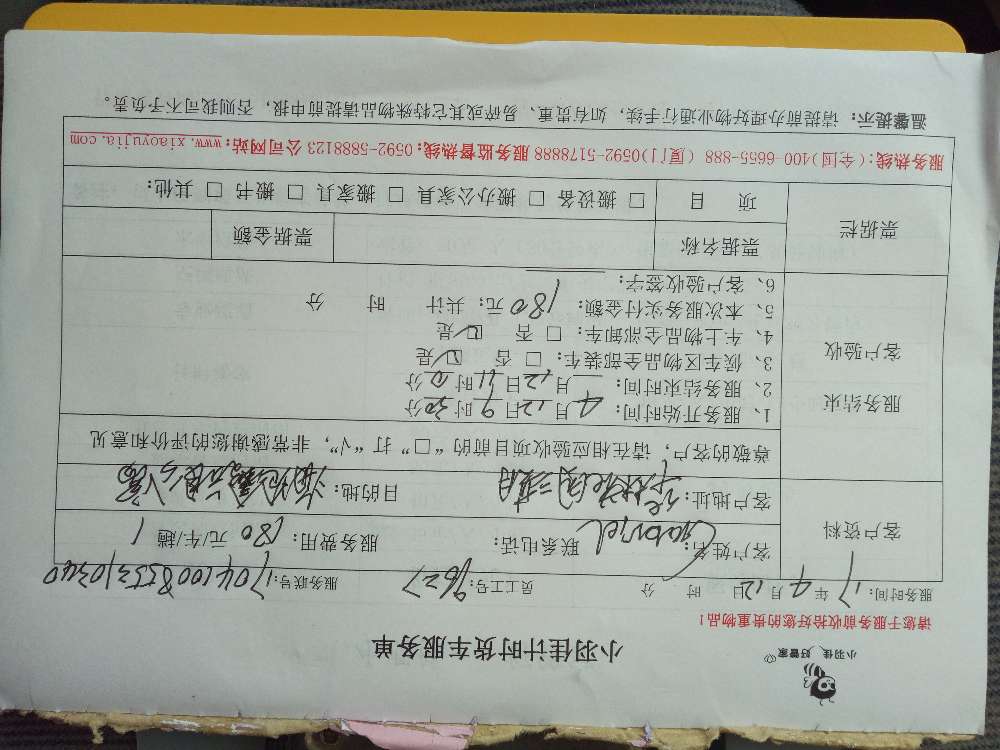 小羽佳 好管家
小羽佳计时货车服务单
请您于服务前收拾好您的贵重物品！
服务时间：17年4月12日 时 分 员工工号：9627 服务联号：
客户资料
客户姓名：Gabriel 联系电话： 服务费用：180元/车/趟 1
客户地址： 目的地：
尊敬的客户，请在相应验收项目前的“□”打“√”，非常感谢您的评价和意见
服务结束
客户验收
1、服务开始时间：4月12日9时30分
2、服务结束时间： 月12日11时0分
3、候车区物品全部装车：□ 否 ☑ 是
4、车上物品全部卸车：□ 否 ☑ 是
5、本次服务实付金额：180元；共计 时 分
6、客户验收签字：
票据栏
票据名称 票据金额
项 目 □ 搬设备 □ 搬办公家具 □ 搬家具 □ 搬书 □ 其他：
服务热线：(全国)400-6655-888 (厦门)0592-5178888 服务监督热线：0592-5888123 公司网站：www.xiaoyujia.com
温馨提示：请提前办理好物业通行手续，如有贵重、易碎或其它特殊物品请提前申明，否则我司不予负责。